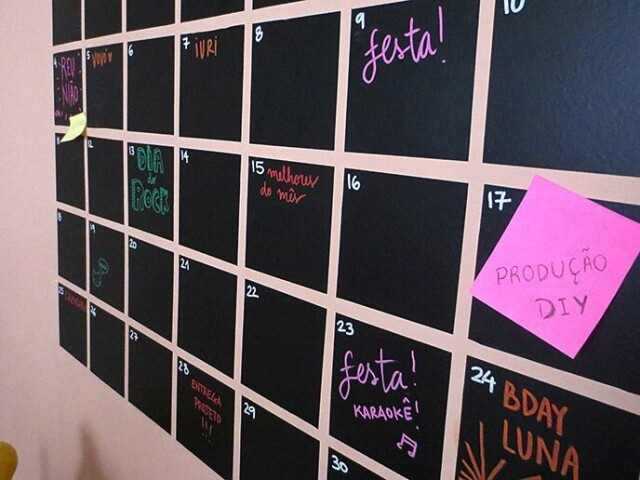 10
9
festa!
8
7
IURI
6
5
VOVÓ
4
REU
NIÃO
12
13
DIA
do
ROCK
14
15
melhores
do mês
16
17
PRODUÇÃO
DIY
18
19
20
21
22
23
festa!
KARAOKÊ!
24
BDAY
LUNA
25
26
27
28
ENTREGA
PROJETO
!!!
29
30